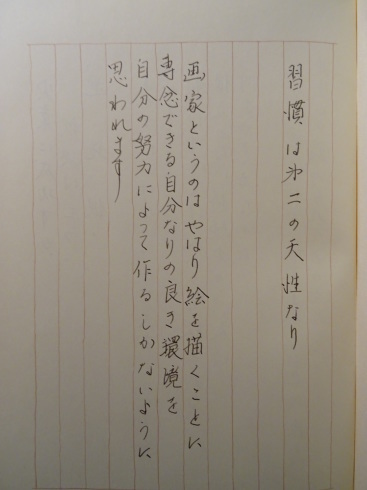 習慣は第二の天性なり
画家というのはやはり絵を描くことに
専念できる自分なりの良き環境を
自分の努力によって作るしかないように
思われます